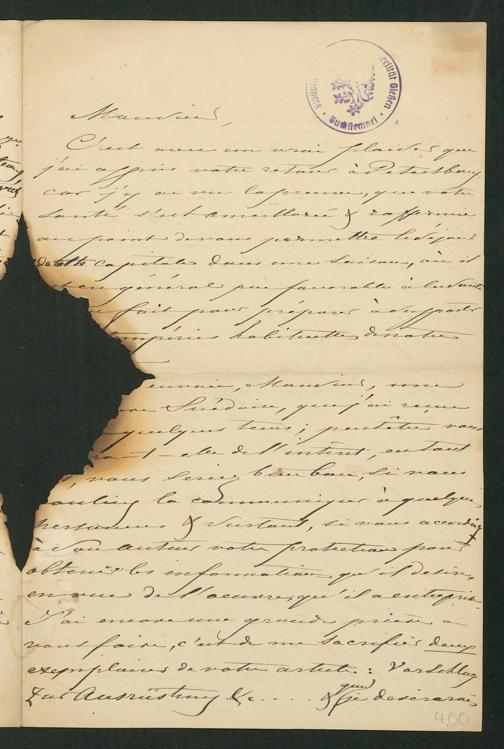 Monsieur,
C'est avec un vrai plaisir que
j'ai appris votre retour à Petersbourg
car j'y ai vu la preuve, que votre
santé s'est améliorée & raffermie
au point de vous permettre le séjour
de cette capitale dans une saison, où il
est en général peu favorable à la santé
fait pour préparer à supporter
intempéries habituelles de notre
envoie, Monsieur, une
Suédoise, que j'ai reçue
quelques tems; peutêtre vous
-elle de l'intérêt, en tout
vous seriez bien bon, si vous
vouliez la communiquer à quelques
personnes & surtout, si vous accordiez
à son auteur votre protection pour
obtenir les informations qu'il désire,
en vue de l'oeuvre, qu'il a entreprise.
J'ai encore une grande prière à
vous faire, c'est de me sacrifier deux
exemplaires de votre article: Vorschlag
zur Ausrüstung &c.... & que je désirerais
400